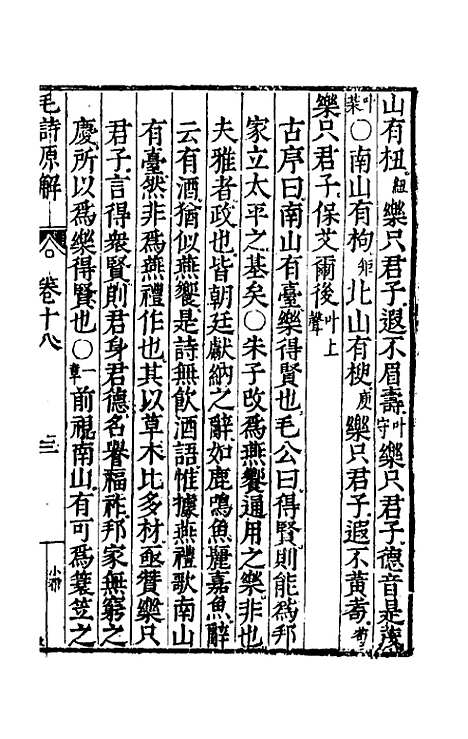 山有杻紐樂只君子遐不眉壽叶守樂只君子德音是茂
叶葉○南山有枸矩北山有楰庾樂只君子遐不黃耉苟
樂只君子保艾爾後叶上聲
古序曰南山有臺樂得賢也毛公曰得賢則能爲邦
家立太平之基矣○朱子改爲燕饗通用之樂非也
夫雅者政也皆朝廷獻納之辭如鹿鳴魚麗嘉魚辭
云有酒猶似燕饗是詩無飲酒語惟據燕禮歌南山
有臺然非爲燕禮作也其以草木比多材亟贊樂只
君子言得衆賢則君身君德名譽福祚邦家無窮之
慶所以爲樂得賢也○一章前視南山有可爲蓑笠之
毛詩原解 卷十八 三 小雅